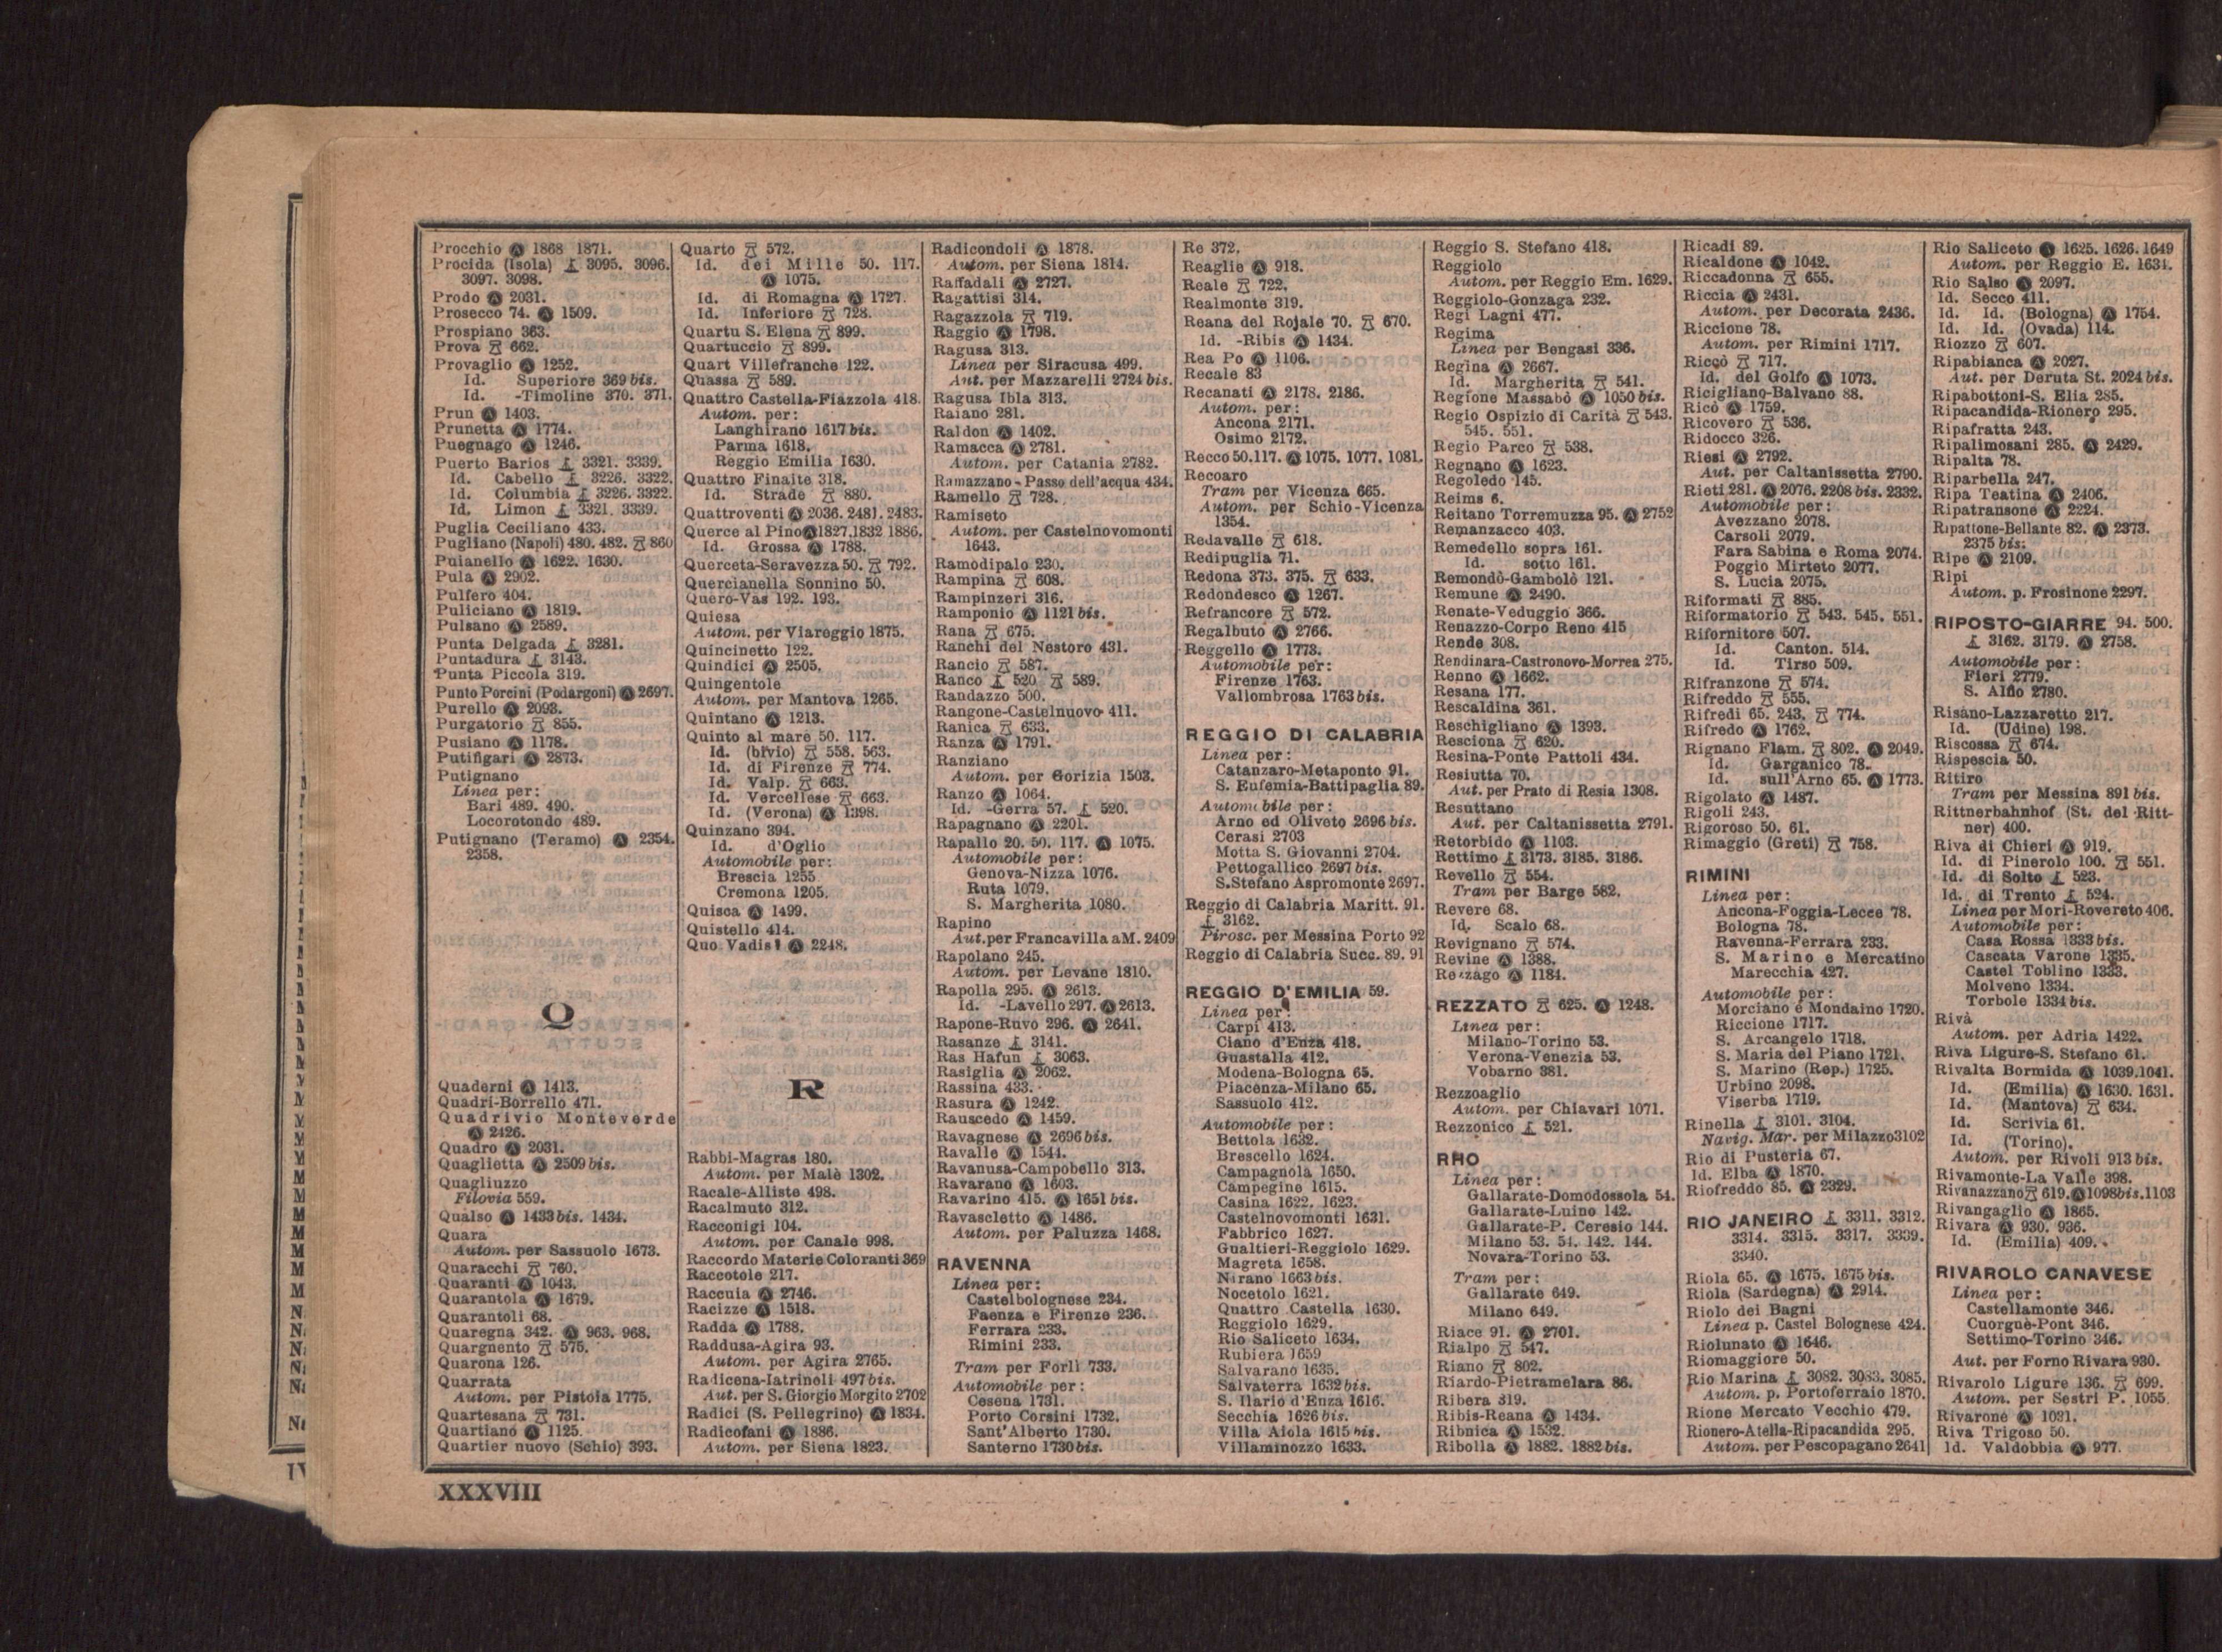 Procchio Ⓐ 1868 1871.
Procida (Isola) ⚓ 3095. 3096.
3097. 3098.
Prodo Ⓐ 2031.
Prosecco 74. Ⓐ 1509.
Prospiano 363.
Prova 662.
Provaglio Ⓐ 1252.
Id. Superiore 369 bis.
Id. -Timoline 370. 371.
Prun Ⓐ 1403.
Prunetta Ⓐ 1774.
Puegnago Ⓐ 1246.
Puerto Barios ⚓ 3321. 3339.
Id. Cabello ⚓ 3226. 3322.
Id. Columbia ⚓ 3226. 3322.
Id. Limon ⚓ 3321. 3339.
Puglia Ceciliano 433.
Pugliano (Napoli) 480. 482. 860
Puianello Ⓐ 1622. 1630.
Pula Ⓐ 2902.
Pulfero 404.
Puliciano Ⓐ 1819.
Pulsano Ⓐ 2589.
Punta Delgada ⚓ 3281.
Puntadura ⚓ 3143.
Punta Piccola 319.
Punto Porcini (Podargoni) Ⓐ 2697.
Purello Ⓐ 2093.
Purgatorio 855.
Pusiano Ⓐ 1178.
Putifigari Ⓐ 2873.
Putignano
Linea per:
Bari 489. 490.
Locorotondo 489.
Putignano (Teramo) Ⓐ 2354.
2358.
Q
Quaderni Ⓐ 1413.
Quadri-Borrello 471.
Quadrivio Monteverde
Ⓐ 2426.
Quadro Ⓐ 2031.
Quaglietta Ⓐ 2509 bis.
Quagliuzzo
Filovia 559.
Qualso Ⓐ 1433 bis. 1434.
Quara
Autom. per Sassuolo 1673.
Quaracchi 760.
Quaranti Ⓐ 1043.
Quarantola Ⓐ 1679.
Quarantoli 68.
Quaregna 342. Ⓐ 963. 968.
Quargnento 575.
Quarona 126.
Quarrata
Autom. per Pistoia 1775.
Quartesana 731.
Quartiano Ⓐ 1125.
Quartier nuovo (Schio) 393.
Quarto 572.
Id. dei Mille 50. 117.
Ⓐ 1075.
Id. di Romagna Ⓐ 1727.
Id. Inferiore 728.
Quartu S. Elena 899.
Quartuccio 899.
Quart Villefranche 122.
Quassa 589.
Quattro Castella-Piazzola 418.
Autom. per:
Langhirano 1617 bis.
Parma 1618.
Reggio Emilia 1630.
Quattro Finaite 318.
Id. Strade 880.
Quattroventi Ⓐ 2036. 2481. 2483.
Querce al Pino Ⓐ 1827. 1832 1886.
Id. Grossa Ⓐ 1788.
Querceta-Seravezza 50. 792.
Quercianella Sonnino 50.
Quero-Vas 192. 193.
Quiesa
Autom. per Viareggio 1875.
Quincinetto 122.
Quindici Ⓐ 2505.
Quingentole
Autom. per Mantova 1265.
Quintano Ⓐ 1213.
Quinto al mare 50. 117.
Id. (bivio) 558. 563.
Id. di Firenze 774.
Id. Valp. 663.
Id. Vercellese 663.
Id. (Verona) Ⓐ 1398.
Quinzano 394.
Id. d'Oglio
Automobile per:
Brescia 1255
Cremona 1205.
Quisca Ⓐ 1499.
Quistello 414.
Quo Vadis? Ⓐ 2248.
R
Rabbi-Magras 180.
Autom. per Malè 1302.
Racale-Alliste 498.
Racalmuto 312.
Racconigi 104.
Autom. per Canale 998.
Raccordo Materie Coloranti 369
Raccotole 217.
Raccuia Ⓐ 2746.
Racizze Ⓐ 1518.
Radda Ⓐ 1788.
Raddusa-Agira 93.
Autom. per Agira 2765.
Radicena-Iatrinoli 497 bis.
Aut. per S. Giorgio Morgito 2702
Radici (S. Pellegrino) Ⓐ 1834.
Radicofani Ⓐ 1886.
Autom. per Siena 1823.
Radicondoli Ⓐ 1878.
Autom. per Siena 1814.
Raffadali Ⓐ 2727.
Ragattisi 314.
Ragazzola 719.
Raggio Ⓐ 1798.
Ragusa 313.
Linea per Siracusa 499.
Aut. per Mazzarelli 2724 bis.
Ragusa Ibla 313.
Raiano 281.
Raldon Ⓐ 1402.
Ramacca Ⓐ 2781.
Autom. per Catania 2782.
Ramazzano - Passo dell'acqua 434.
Ramello 728.
Ramiseto
Autom. per Castelnovomonti
1643.
Ramodipalo 230.
Rampina 608.
Rampinzeri 316.
Ramponio Ⓐ 1121 bis.
Rana 675.
Ranchi del Nestoro 431.
Rancio 587.
Ranco ⚓ 520 589.
Randazzo 500.
Rangone-Castelnuovo 411.
Ranica 633.
Ranza Ⓐ 1791.
Ranziano
Autom. per Gorizia 1503.
Ranzo Ⓐ 1064.
Id. -Gerra 57. ⚓ 520.
Rapagnano Ⓐ 2201.
Rapallo 20. 50. 117. Ⓐ 1075.
Automobile per:
Genova-Nizza 1076.
Ruta 1079.
S. Margherita 1080.
Rapino
Aut. per Francavilla a M. 2409
Rapolano 245.
Autom. per Levane 1810.
Rapolla 295. Ⓐ 2613.
Id. -Lavello 297. Ⓐ 2613.
Rapone-Ruvo 296. Ⓐ 2641.
Rasanze ⚓ 3141.
Ras Hafun ⚓ 3063.
Rasiglia Ⓐ 2062.
Rassina 433.
Rasura Ⓐ 1242.
Rauscedo Ⓐ 1459.
Ravagnese Ⓐ 2696 bis.
Ravalle Ⓐ 1544.
Ravanusa-Campobello 313.
Ravarano Ⓐ 1603.
Ravarino 415. Ⓐ 1651 bis.
Ravascletto Ⓐ 1486.
Autom. per Paluzza 1468.
RAVENNA
Linea per:
Castelbolognese 234.
Faenza e Firenze 236.
Ferrara 233.
Rimini 233.
Tram per Forlì 733.
Automobile per:
Cesena 1731.
Porto Corsini 1732.
Sant'Alberto 1730.
Santerno 1730 bis.
Re 372.
Reaglie Ⓐ 918.
Reale 722.
Realmonte 319.
Reana del Rojale 70. 670.
Id. -Ribis Ⓐ 1434.
Rea Po Ⓐ 1106.
Recale 83
Recanati Ⓐ 2178. 2186.
Autom. per:
Ancona 2171.
Osimo 2172.
Recco 50.117. Ⓐ 1075. 1077. 1081.
Recoaro
Tram per Vicenza 665.
Autom. per Schio-Vicenza
1354.
Redavalle 618.
Redipuglia 71.
Redona 373. 375. 633.
Redondesco Ⓐ 1267.
Refrancore 572.
Regalbuto Ⓐ 2766.
Reggello Ⓐ 1773.
Automobile per:
Firenze 1763.
Vallombrosa 1763 bis.
REGGIO DI CALABRIA
Linea per:
Catanzaro-Metaponto 91.
S. Eufemia-Battipaglia 89.
Automobile per:
Arno ed Oliveto 2696 bis.
Cerasi 2703
Motta S. Giovanni 2704.
Pettogallico 2697 bis.
S. Stefano Aspromonte 2697.
Reggio di Calabria Maritt. 91.
⚓ 3162.
Pirosc. per Messina Porto 92
Reggio di Calabria Succ. 89. 91
REGGIO D'EMILIA 59.
Linea per:
Carpi 413.
Ciano d'Enza 418.
Guastalla 412.
Modena-Bologna 65.
Piacenza-Milano 65.
Sassuolo 412.
Automobile per:
Bettola 1632.
Brescello 1624.
Campagnola 1650.
Campegine 1615.
Casina 1622. 1623.
Castelnovomonti 1631.
Fabbrico 1627.
Gualtieri-Reggiolo 1629.
Magreta 1658.
Nirano 1663 bis.
Nocetolo 1621.
Quattro Castella 1630.
Reggiolo 1629.
Rio Saliceto 1634.
Rubiera 1659
Salvarano 1635.
Salvaterra 1632 bis.
S. Ilario d'Enza 1616.
Secchia 1626 bis.
Villa Aiola 1615 bis.
Villaminozzo 1633.
Reggio S. Stefano 418.
Reggiolo
Autom. per Reggio Em. 1629.
Reggiolo-Gonzaga 232.
Regi Lagni 477.
Regima
Linea per Bengasi 336.
Regina Ⓐ 2667.
Id. Margherita 541.
Regione Massabò Ⓐ 1050 bis.
Regio Ospizio di Carità 543.
545. 551.
Regio Parco 538.
Regnano Ⓐ 1623.
Regoledo 145.
Reims 6.
Reitano Torremuzza 95. Ⓐ 2752
Remanzacco 403.
Remedello sopra 161.
Id. sotto 161.
Remondò-Gambolò 121.
Remune Ⓐ 2490.
Renate-Veduggio 366.
Renazzo-Corpo Reno 415
Rende 308.
Rendinara-Castronovo-Morrea 275.
Renno Ⓐ 1662.
Resana 177.
Rescaldina 361.
Reschigliano Ⓐ 1393.
Resciona 620.
Resina-Ponte Pattoli 434.
Resiutta 70.
Aut. per Prato di Resia 1308.
Resuttano
Aut. per Caltanissetta 2791.
Retorbido Ⓐ 1103.
Rettimo ⚓ 3173. 3185. 3186.
Revello 554.
Tram per Barge 582.
Revere 68.
Id. Scalo 68.
Revignano 574.
Revine Ⓐ 1388.
Rezzago Ⓐ 1184.
REZZATO 625. Ⓐ 1248.
Linea per:
Milano-Torino 53.
Verona-Venezia 53.
Vobarno 381.
Rezzoaglio
Autom. per Chiavari 1071.
Rezzonico ⚓ 521.
RHO
Linea per:
Gallarate-Domodossola 54.
Gallarate-Luino 142.
Gallarate-P. Ceresio 144.
Milano 53. 54. 142. 144.
Novara-Torino 53.
Tram per:
Gallarate 649.
Milano 649.
Riace 91. Ⓐ 2701.
Rialpo 547.
Riano 802.
Riardo-Pietramelara 86.
Ribera 319.
Ribis-Reana Ⓐ 1434.
Ribnica Ⓐ 1532.
Ribolla Ⓐ 1882. 1882 bis.
Ricadi 89.
Ricaldone Ⓐ 1042.
Riccadonna 655.
Riccia Ⓐ 2431.
Autom. per Decorata 2436.
Riccione 78.
Autom. per Rimini 1717.
Riccò 717.
Id. del Golfo Ⓐ 1073.
Ricigliano-Balvano 88.
Ricò Ⓐ 1759.
Ricovero 536.
Ridocco 326.
Riesi Ⓐ 2792.
Aut. per Caltanissetta 2790.
Rieti 281. Ⓐ 2076. 2208 bis. 2332.
Automobile per:
Avezzano 2078.
Carsoli 2079.
Fara Sabina e Roma 2074.
Poggio Mirteto 2077.
S. Lucia 2075.
Riformati 885.
Riformatorio 543. 545. 551.
Rifornitore 507.
Id. Canton. 514.
Id. Tirso 509.
Rifranzone 574.
Rifreddo 555.
Rifredi 65. 243. 774.
Rifredo Ⓐ 1762.
Rignano Flam. 802. Ⓐ 2049.
Id. Garganico 78.
Id. sull'Arno 65. Ⓐ 1773.
Rigolato Ⓐ 1487.
Rigoli 243.
Rigoroso 50. 61.
Rimaggio (Greti) 758.
RIMINI
Linea per:
Ancona-Foggia-Lecce 78.
Bologna 78.
Ravenna-Ferrara 233.
S. Marino e Mercatino
Marecchia 427.
Automobile per:
Morciano e Mondaino 1720.
Riccione 1717.
S. Arcangelo 1718.
S. Maria del Piano 1721.
S. Marino (Rep.) 1725.
Urbino 2098.
Viserba 1719.
Rinella ⚓ 3101. 3104.
Navig. Mar. per Milazzo 3102
Rio di Pusteria 67.
Id. Elba Ⓐ 1870.
Riofreddo 85. Ⓐ 2329.
RIO JANEIRO ⚓ 3311. 3312.
3314. 3315. 3317. 3339.
3340.
Riola 65. Ⓐ 1675. 1675 bis.
Riola (Sardegna) Ⓐ 2914.
Riolo dei Bagni
Linea p. Castel Bolognese 424.
Riolunato Ⓐ 1646.
Riomaggiore 50.
Rio Marina ⚓ 3082. 3083. 3085.
Autom. p. Portoferraio 1870.
Rione Mercato Vecchio 479.
Rionero-Atella-Ripacandida 295.
Autom. per Pescopagano 2641
Rio Saliceto Ⓐ 1625. 1626. 1649
Autom. per Reggio E. 1634.
Rio Salso Ⓐ 2097.
Id. Secco 411.
Id. Id. (Bologna) Ⓐ 1754.
Id. Id. (Ovada) 114.
Riozzo 607.
Ripabianca Ⓐ 2027.
Aut. per Deruta St. 2024 bis.
Ripabottoni-S. Elia 285.
Ripacandida-Rionero 295.
Ripafratta 243.
Ripalimosani 285. Ⓐ 2429.
Ripalta 78.
Riparbella 247.
Ripa Teatina Ⓐ 2406.
Ripatransone Ⓐ 2224.
Ripattone-Bellante 82. Ⓐ 2373.
2375 bis.
Ripe Ⓐ 2109.
Ripi
Autom. p. Frosinone 2297.
RIPOSTO-GIARRE 94. 500.
⚓ 3162. 3179. Ⓐ 2758.
Automobile per:
Fieri 2779.
S. Alfio 2780.
Risano-Lazzaretto 217.
Id. (Udine) 198.
Riscossa 674.
Rispescia 50.
Ritiro
Tram per Messina 891 bis.
Rittnerbahnhof (St. del Ritt-
ner) 400.
Riva di Chieri Ⓐ 919.
Id. di Pinerolo 100. 551.
Id. di Solto ⚓ 523.
Id. di Trento ⚓ 524.
Linea per Mori-Rovereto 406.
Automobile per:
Casa Rossa 1333 bis.
Cascata Varone 1335.
Castel Toblino 1333.
Molveno 1334.
Torbole 1334 bis.
Rivà
Autom. per Adria 1422.
Riva Ligure-S. Stefano 61.
Rivalta Bormida Ⓐ 1039.1041.
Id. (Emilia) Ⓐ 1630. 1631.
Id. (Mantova) 634.
Id. Scrivia 61.
Id. (Torino).
Autom. per Rivoli 913 bis.
Rivamonte-La Valle 398.
Rivanazzano 619. Ⓐ 1098 bis. 1103
Rivangaglio Ⓐ 1865.
Rivara Ⓐ 930. 936.
Id. (Emilia) 409.
RIVAROLO CANAVESE
Linea per:
Castellamonte 346.
Cuorgnè-Pont 346.
Settimo-Torino 346.
Aut. per Forno Rivara 930.
Rivarolo Ligure 136. 699.
Autom. per Sestri P. 1055
Rivarone Ⓐ 1031.
Riva Trigoso 50.
Id. Valdobbia Ⓐ 977.
XXXVIII